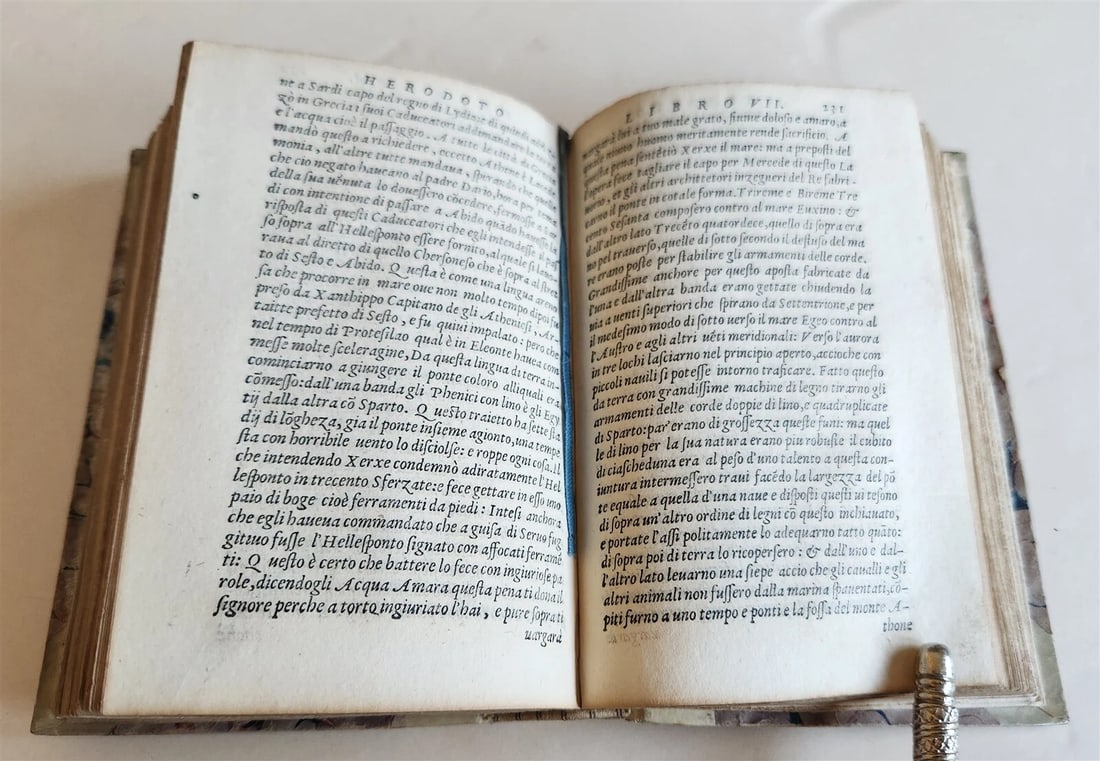 HERODOTO
ne a Sardi capo del regno di Lydia: e di quindi
gò in Grecia i suoi Caduceatori addimandare
e l'acqua cioè il passaggio. A tutte le città di
mandò questo a richiedere, eccetto Athene è Lacede
monia, all'altre tutte mandaua, sperando che quello
che cio negato haueano al padre Dario, hora per tema
della sua uenuta lo douessero cōcedere, fermosse a Sar
di con intentione di passare a Abido quādo hauesse la
risposta di questi Caduceatori che egli intendesse il pas
so sopra all'Hellesponto essere fornito, alquale si
raua al diretto di quello Chersoneso che è sopra al stret
to di Sesto e Abido. Questa è come una lingua
sa che procorre in mare oue non molto tempo dipoi fu
preso da Xanthippo Capitano de gli Atheniesi, Ar-
taitte prefetto di Sesto, e fu quiui impalato: pero che
nel tempio di Protesilao qual è in Eleonte hauea com
messe molte sceleragine, Da questa lingua di terra in-
cominciarno a giungere il ponte coloro alliquali era
cōmesso: dall'una banda gli Phenici con lino è gli Egy
tij dalla altra cō Sparto. Questo traietto ha sette sta
dij di lōgheza, gia il ponte insieme agionto, una tempe
sta con horribile uento lo disciolse: e roppe ogni cosa. Il
che intendendo Xerxe condemnò adiratamente l'Hel
lesponto in trecento Sferzate: e fece gettare in esso uno
paio di boge cioè ferramenti da piedi: Intesi anchora
che egli haueua commandato che a guisa di Seruo fug
gitiuo fusse l'Hellesponto signato con affocati ferramē
ti: Questo è certo che battere lo fece con ingiuriose pa
role, dicendogli Acqua Amara questa pena ti dona il
signore perche a torto ingiuriato l'hai, e pure soprati
uargarà
LIBRO VII. 231
uargarà lui a tuo male grato, fiume doloso e amaro, a
quale niuno huomo meritamente rende sacrificio. A
questa pena sentētiò Xerxe il mare: ma a preposti del
l'opera fece tagliare il capo per Mercede di questo La
uorio, et gli altri architettori inzegneri del Re fabri-
carno il ponte in cotale forma. Trireme e Bireme Tre
cento Sesanta composero contro al mare Euxino: &
dall'altro lato Trecēto quatordece, quello di sopra era
no pel trauerso, quelle di sotto secondo il deflusso del ma
re erano poste per stabilire gli armamenti delle corde.
Grandissime anchore per questo aposta fabricate da
l'una e dall'altra banda erano gettate chiudendo la
uia a uenti superiori che spirano da Settentrione, e per
il medesimo modo di sotto uerso il mare Egeo contro al
l'Austro e agli altri uēti meridionali: Verso l'aurora
in tre lochi lasciarno nel principio aperto, accioche con
piccoli nauili si potesse intorno traficare. Fatto questo
da terra con grandissime machine di legno tirarno gli
armamenti delle corde doppie di lino, e quadruplicate
di Sparto: par'erano di grossezza queste funi: ma quel
le di lino per la sua natura erano piu robuste il cubito
di ciascheduna era al peso d'uno talento a questa con-
iuntura intermessero traui facēdo la largezza del pō
te equale a quella d'una naue e disposti questi ui tesono
di sopra un'altro ordine di legni cō questo inchiauato,
e portate l'assi politamente lo adequarno tatto quāto:
di sopra poi di terra lo ricopersero: & dall'uno e dal-
l'altro lato leuarno una siepe accio che gli caualli e gli
altri animali non fussero dalla marina spauentati, cō-
piti furno a uno tempo e ponti e la fossa del monte A-
thone